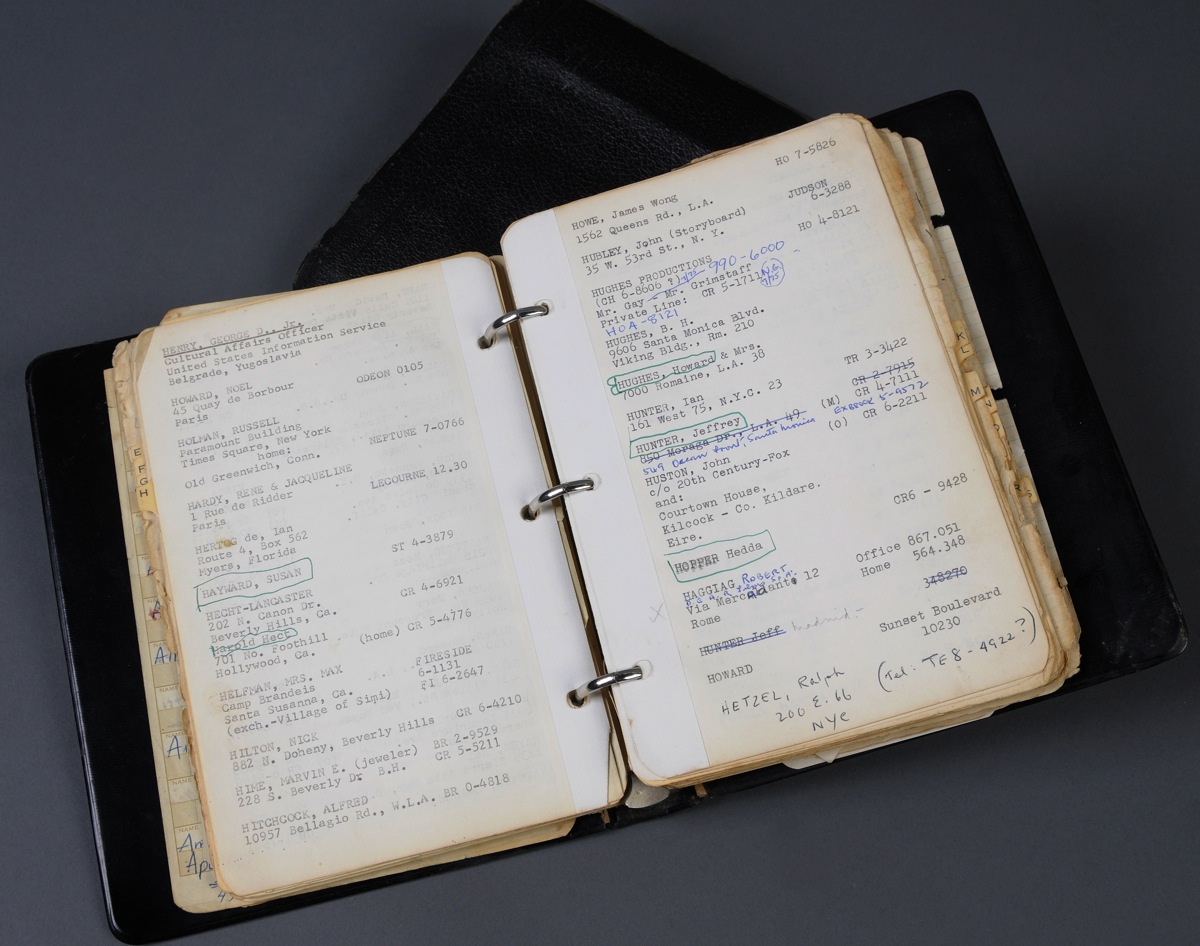 HENRY, GEORGE D., Jr.
Cultural Affairs Officer
United States Information Service
Belgrade, Yugoslavia
HOWARD, NOEL
45 Quay de Borbour ODEON 0105
Paris
HOLMAN, RUSSELL
Paramount Building
Times Square, New York
home: NEPTUNE 7-0766
Old Greenwich, Conn.
HARDY, RENE & JACQUELINE
1 Rue de Ridder LECOURNE 12.30
Paris
HERTOG de, Ian
Route 4, Box 562 ST 4-3879
Myers, Florida
HAYWARD, SUSAN
HECHT-LANCASTER
202 N. Canon Dr. CR 4-6921
Beverly Hills, Ca.
Harold Hect
701 No. Foothill (home) CR 5-4776
Hollywood, Ca.
HELFMAN, MRS. MAX
Camp Brandeis FIRESIDE
Santa Susanna, Ca. 6-1131
(exch.-Village of Simi) FI 6-2647
HILTON, NICK
882 N. Doheny, Beverly Hills CR 6-4210
HIME, MARVIN E. (jeweler) BR 2-9529
228 S. Beverly Dr. B.H. CR 5-5211
HITCHCOCK, ALFRED
10957 Bellagio Rd., W.L.A. BR 0-4818
HO 7-5826
HOWE, James Wong
1562 Queens Rd., L.A.
JUDSON
HUBLEY, John (Storyboard) 6-3288
35 W. 53rd St., N. Y.
HO 4-8121
HUGHES PRODUCTIONS
(CH 6-8606 ?) 7/75 990-6000
Mr. Gay - Mr. Grimstaff
Private Line: CR 5-1711 N.G. 7/75
HOA-8121
HUGHES, B. H.
9606 Santa Monica Blvd.
Viking Bldg., Rm. 210
HUGHES, Howard & Mrs.
7000 Romaine, L.A. 38
HUNTER, Ian TR 3-3422
161 West 75, N.Y.C. 23
CR 2-7915
HUNTER, Jeffrey (M) CR 4-7111
850 Moraga Dr., L.A. 49 EXBROOK 5-9572
549 Ocean Front, Santa Monica (O) CR 6-2211
HUSTON, John
c/o 20th Century-Fox
and:
Courtown House,
Kilcock - Co. Kildare.
Eire.
CR6 - 9428
HOPPER Hedda
Office 867.051
HAGGIAG, ROBERT Home 564.348
Via Mercadante 12
Rome
348270
HUNTER Jeff Madrid -
Sunset Boulevard
HOWARD 10230
HETZEL, Ralph (Tel: TE8-4922?)
200 E. 66
NYC
E
F
G
H
K
L
M
N
R
S
NAME
NAME
NAME